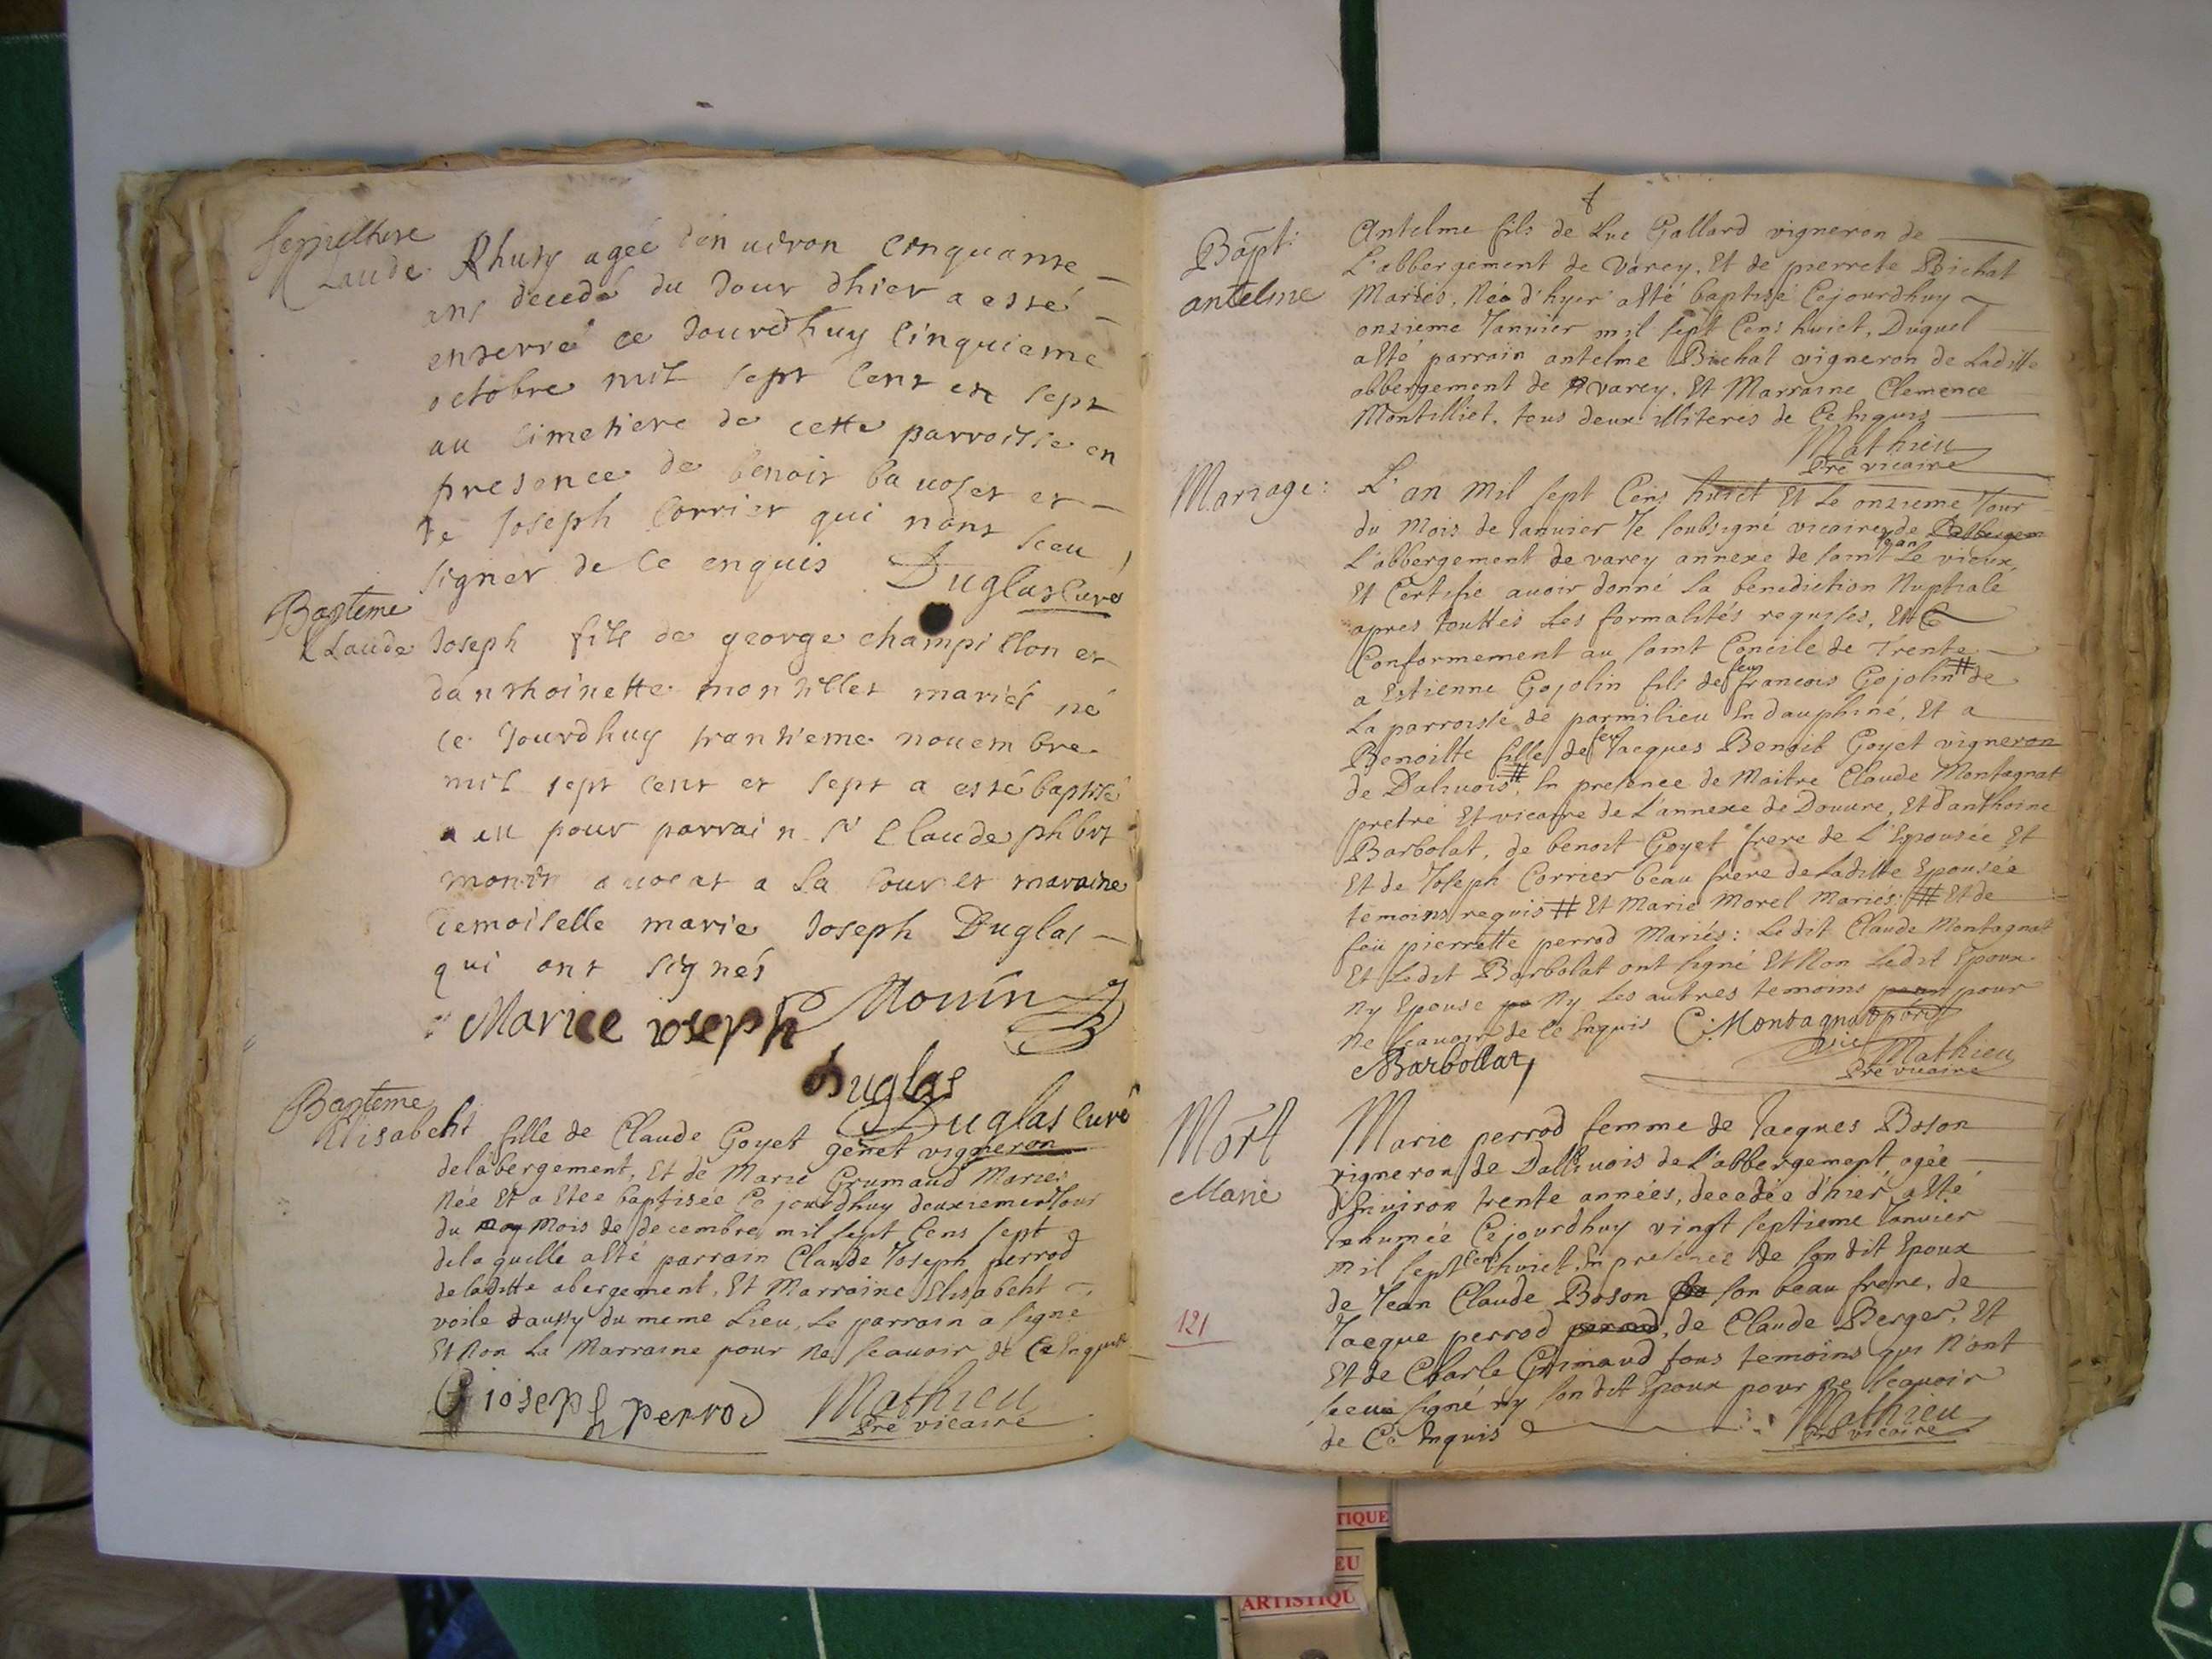 sepulture
Claude Rhuty agée d'en uiron cinquante
ans decedé du Jour dhier a esté
enterré ce Jourdhuy cinquieme
octobre mil sept cent et sept
au cimetiere de cette parroisse en
presence de benoit bauozet et
de Joseph Corrier qui nont sceu
signer de ce enquis Duglas curé
Bapteme
Claude Joseph fils de george champillon et
danthoinette montillet mariés né
ce Jourdhuy trantieme nouembre
mil sept cent et sept a esté baptisé
a eu pour parrain Sr Claude phbrt
monin auocat a la cour et maraine
demoiselle marie Joseph Duglas
qui ont signés
Marie ioseph Monin
Duglas
Duglas curé
Bapteme
Elisabeht fille de Claude Goyet genet vigneron
delabergement, Et de Marie Grumaud Mariés
Née Et a Etée baptisée Ce jourdhuy deuxieme Jour
du Mois de decembre mil sept Cens sept
dela quelle a Eté parrain Claude Joseph perrod
deladitte abergement, Et Marraine Elisabeht
voile d'aussy du meme Lieu, Le parrain a signé
Et Non La Marraine pour ne scauoir de Ce Enquis
C ioseph perrod Mathieu
Pre vicaire
Bapt:
antelme
Antelme fils de Luc Gallard vigneron de
L'abbergement de Varey, Et de pierrete Bichat
Mariés, Née d'hyer a Eté baptisé Cejourdhuy
onzieme Januier mil sept Cens huict, Duquel
a Eté parrain antelme Bichat vigneron de Laditte
abbergement de varey, Et Marraine Clemence
Montilliet, tous deux illiteres de Ce Enquis
Mathieu
Pre vicaire
Mariage:
L'an Mil sept Cens huict Et Le onzieme Jour
du Mois de Januier Je soubsigné vicaire de L'abbergem
L'abbergement de varey annexe de saint Jean Le vieux,
Et Certifie auoir donné La benediction Nuptiale
apres touttes Les formalités requises, Et
Conformement au saint Concile de Trente
a Estienne Gojolin fils de feu francois Gojolin # de
La parroisse de parmilieu En dauphiné, Et a
Benoitte fille de feu Jacques Benoit Goyet vigneron
de Daliuois #, En presence de Maitre Claude Montagnat
pretre Et vicaire de L'annexe de Douure, Et d'anthoine
Barbolat, de benoit Goyet frere de L'Epousée Et
Et de Joseph Corrier beau frere de Laditte Epousée
temoins requis # Et Marie Morel Mariés: # Et de
feu pierrette perrod Mariés: Ledit Claude Montagnat
Et Ledit Barbolat ont signé Et Non Ledit Epoux
ny Epouse ny Les autres temoins pour
ne scauoir de Ce Enquis C. Montagnat pbre
vic
Barbollat Mathieu
Pre vicaire
Mort
Marie
Marie perrod femme de Jacques Boson
vigneron de Daliuois de L'abbergement, agée
d'Enuiron trente années, decedée d'hier, a Eté
Inhumée Cejourdhuy vingt septieme Januier
mil sept cent huict, En presence de son dit Epoux
de Jean Claude Boson son beau frere, de
Jacque perrod perrod, de Claude Berger, Et
Et de Charle Grimaud tous temoins qui n'ont
sceue signé ny son dit Epoux pour ne scauoir
de Ce Enquis Mathieu
Pre vicaire
121
TIQUE
EU
ARTISTIQU